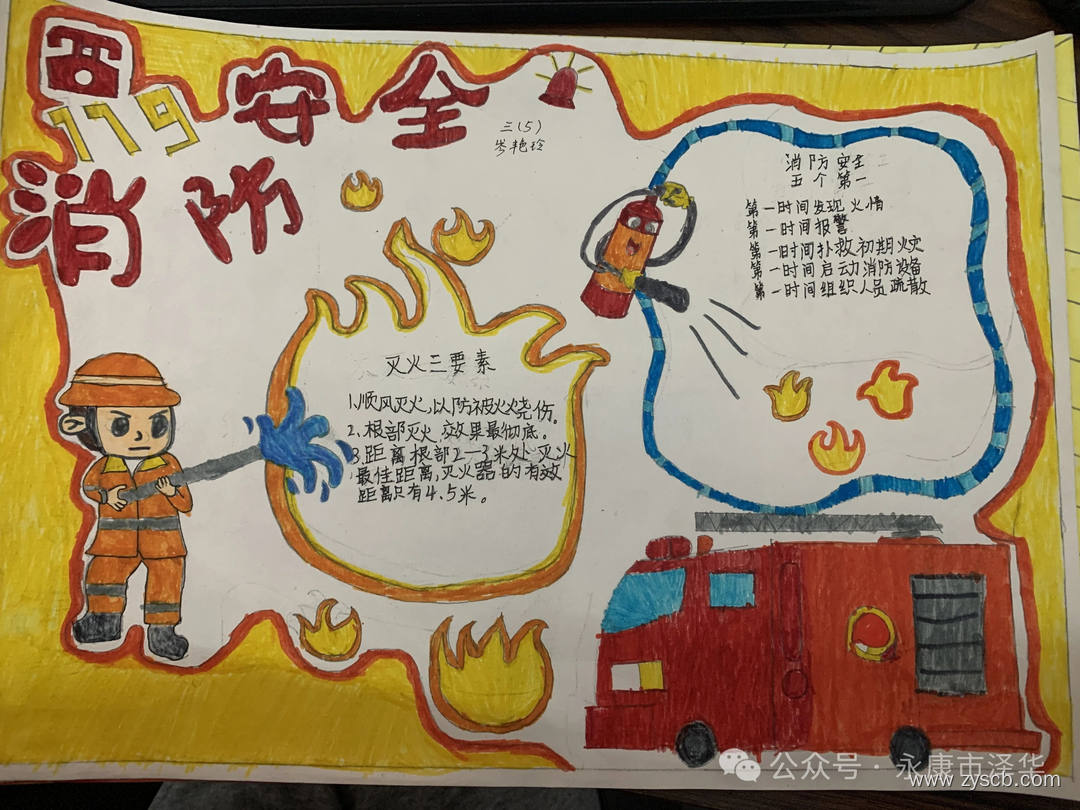 119
安全
消防
三(5)
岑艳玲
消防安全
五个第一
第一时间发现火情
第一时间报警
第一时间扑救初期火灾
第一时间启动消防设备
第一时间组织人员疏散
灭火三要素
1.顺风灭火,以防被火烧伤。
2.根部灭火,效果最彻底。
3.距离根部2—3米处灭火
最佳距离,灭火器的有效
距离只有4.5米。
公众号·永康市泽华
www.zyscb.com